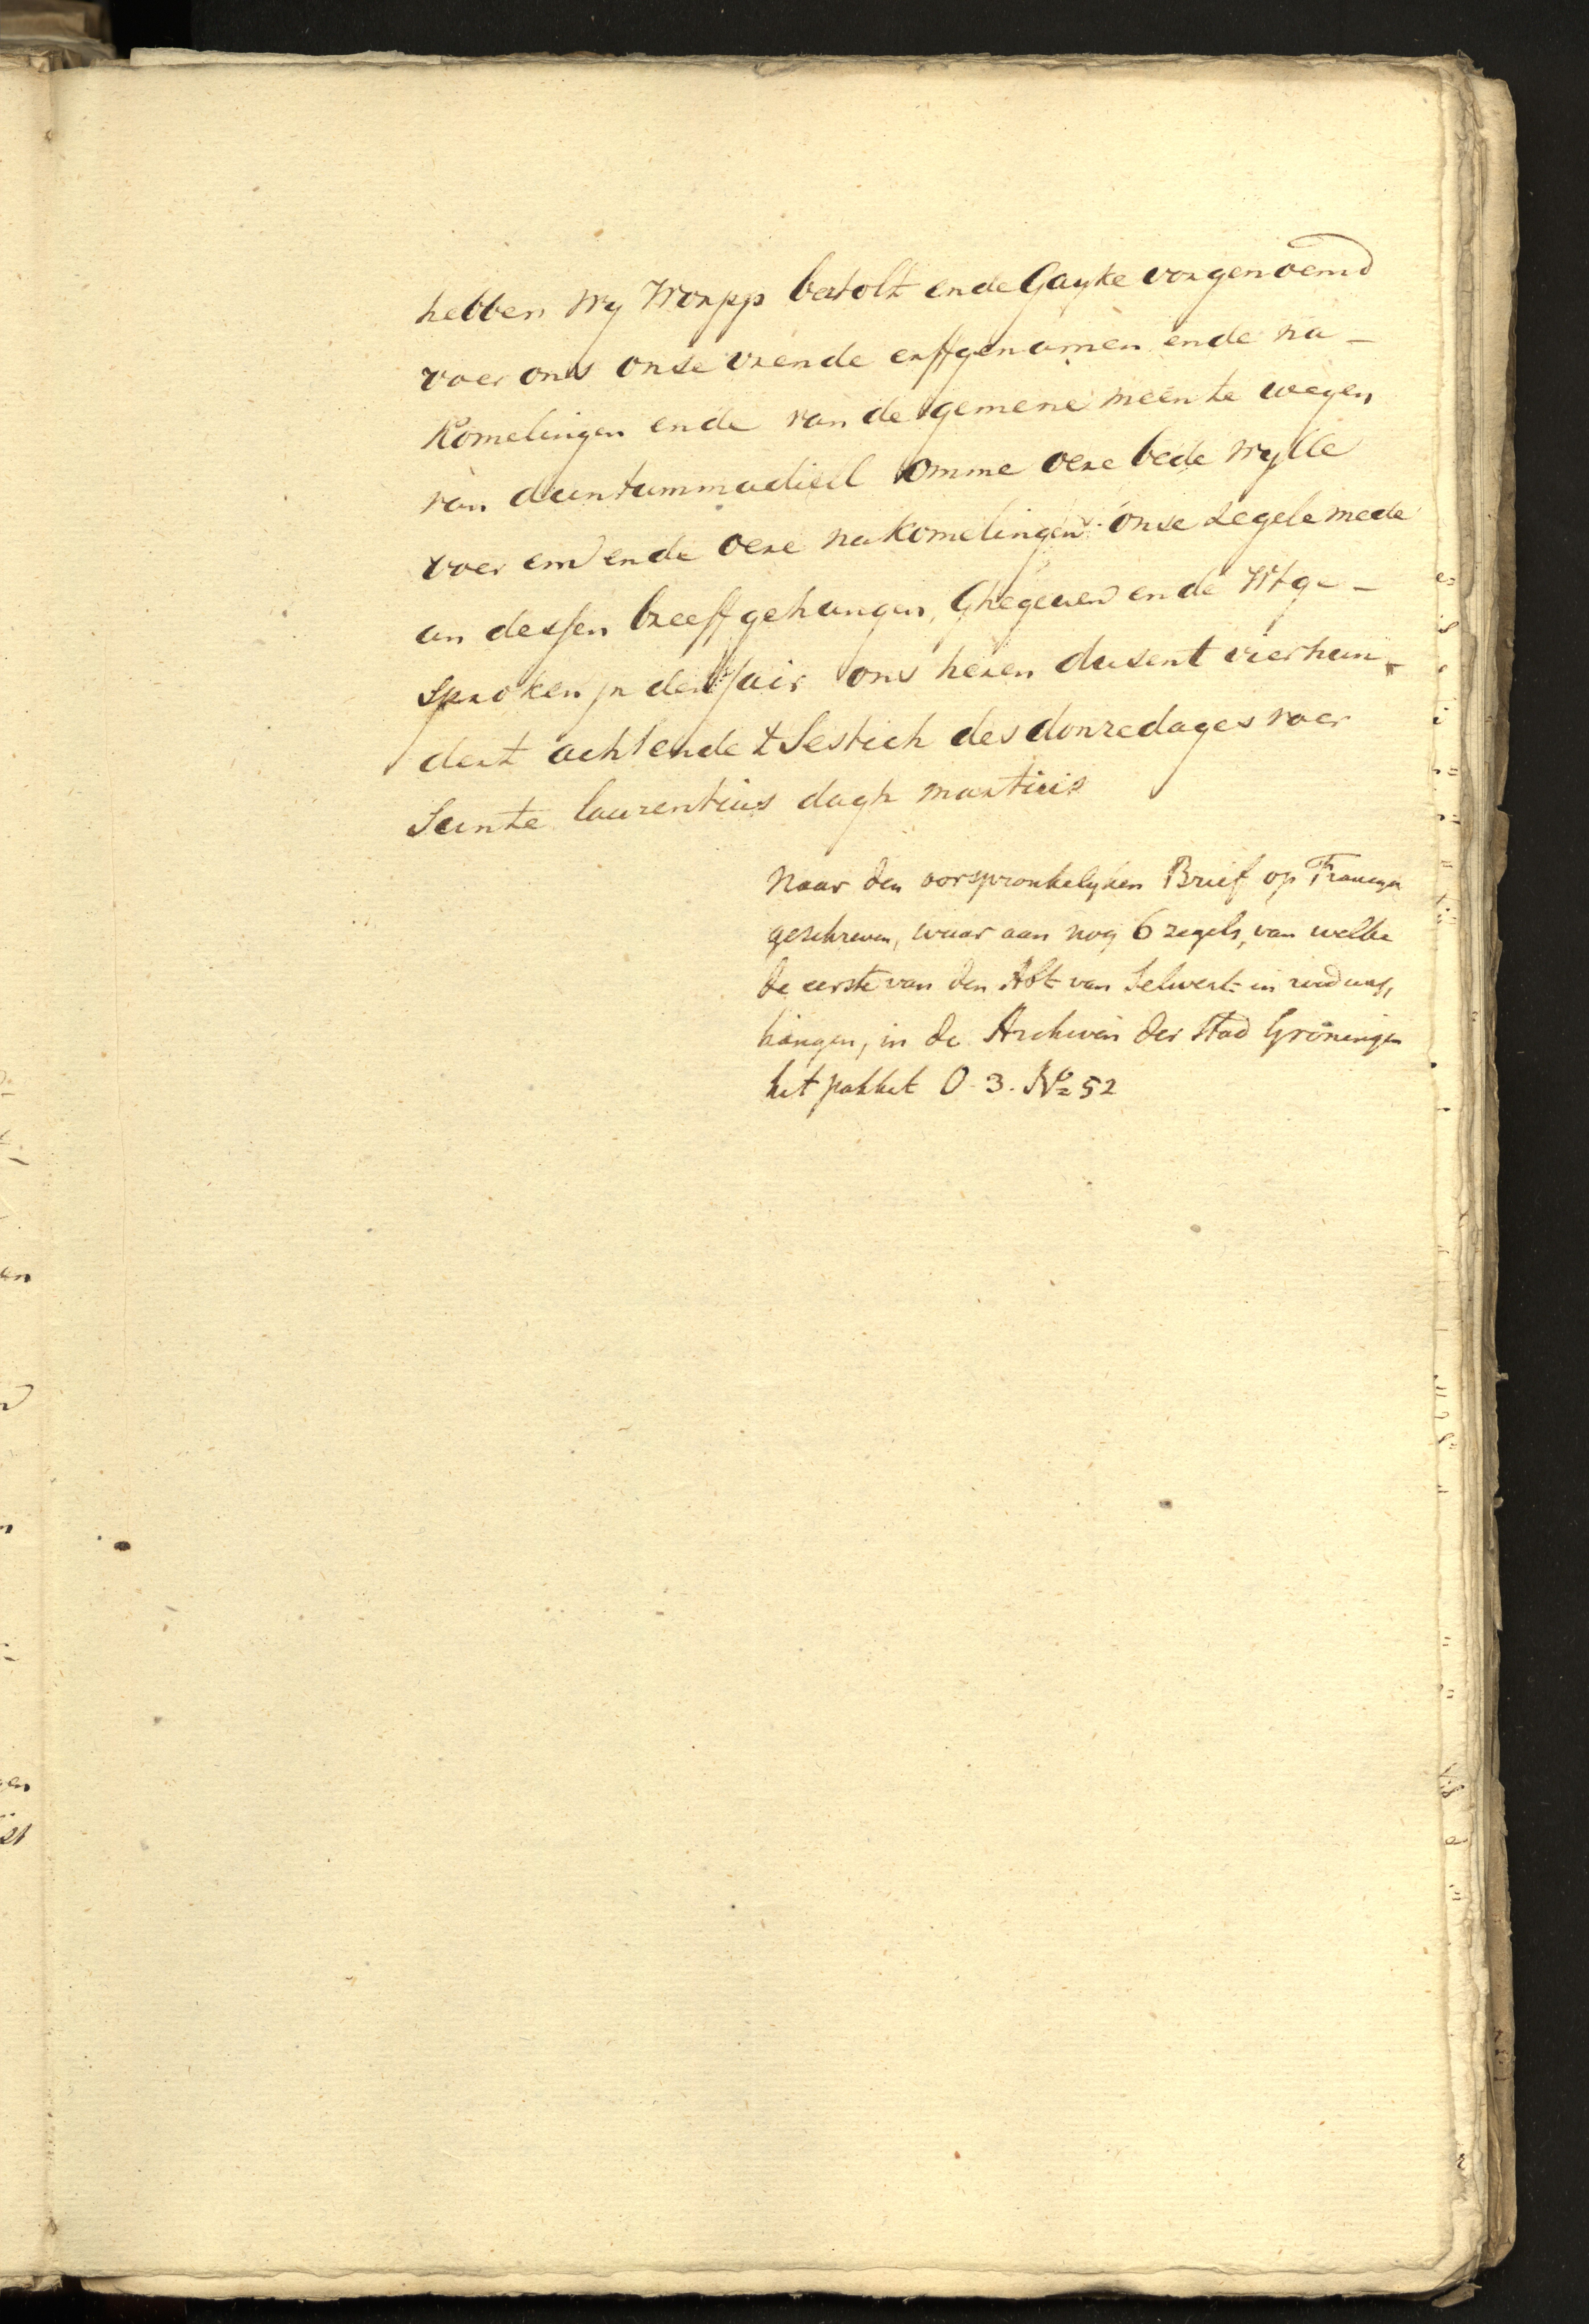 hebben wy Worpp bertolt ende Gayke vorgenoemd
voer ons onse vrende erffgenamen ende na-
komelingen ende van de gemene meente wegen
van duntummadieel omme oere bede wylle
voer em ende oere nakomelingen onse segele mede
an dessen breeff gehangen, Ghegeven ende Wtge-
sproken jn den Jair ons heren dusent vierhun-
dert achtende tSestich des donredages voer
Sunte laurentius dagh martiris
Naar den oorspronkelyken Brief op Francyn
geschreven, waar aan nog 6 zegels, van welke
de eerste van den Abt van Selwert in rood was,
hangen, in de Archiven der Stad Groningen
het pakket O. 3. No 52